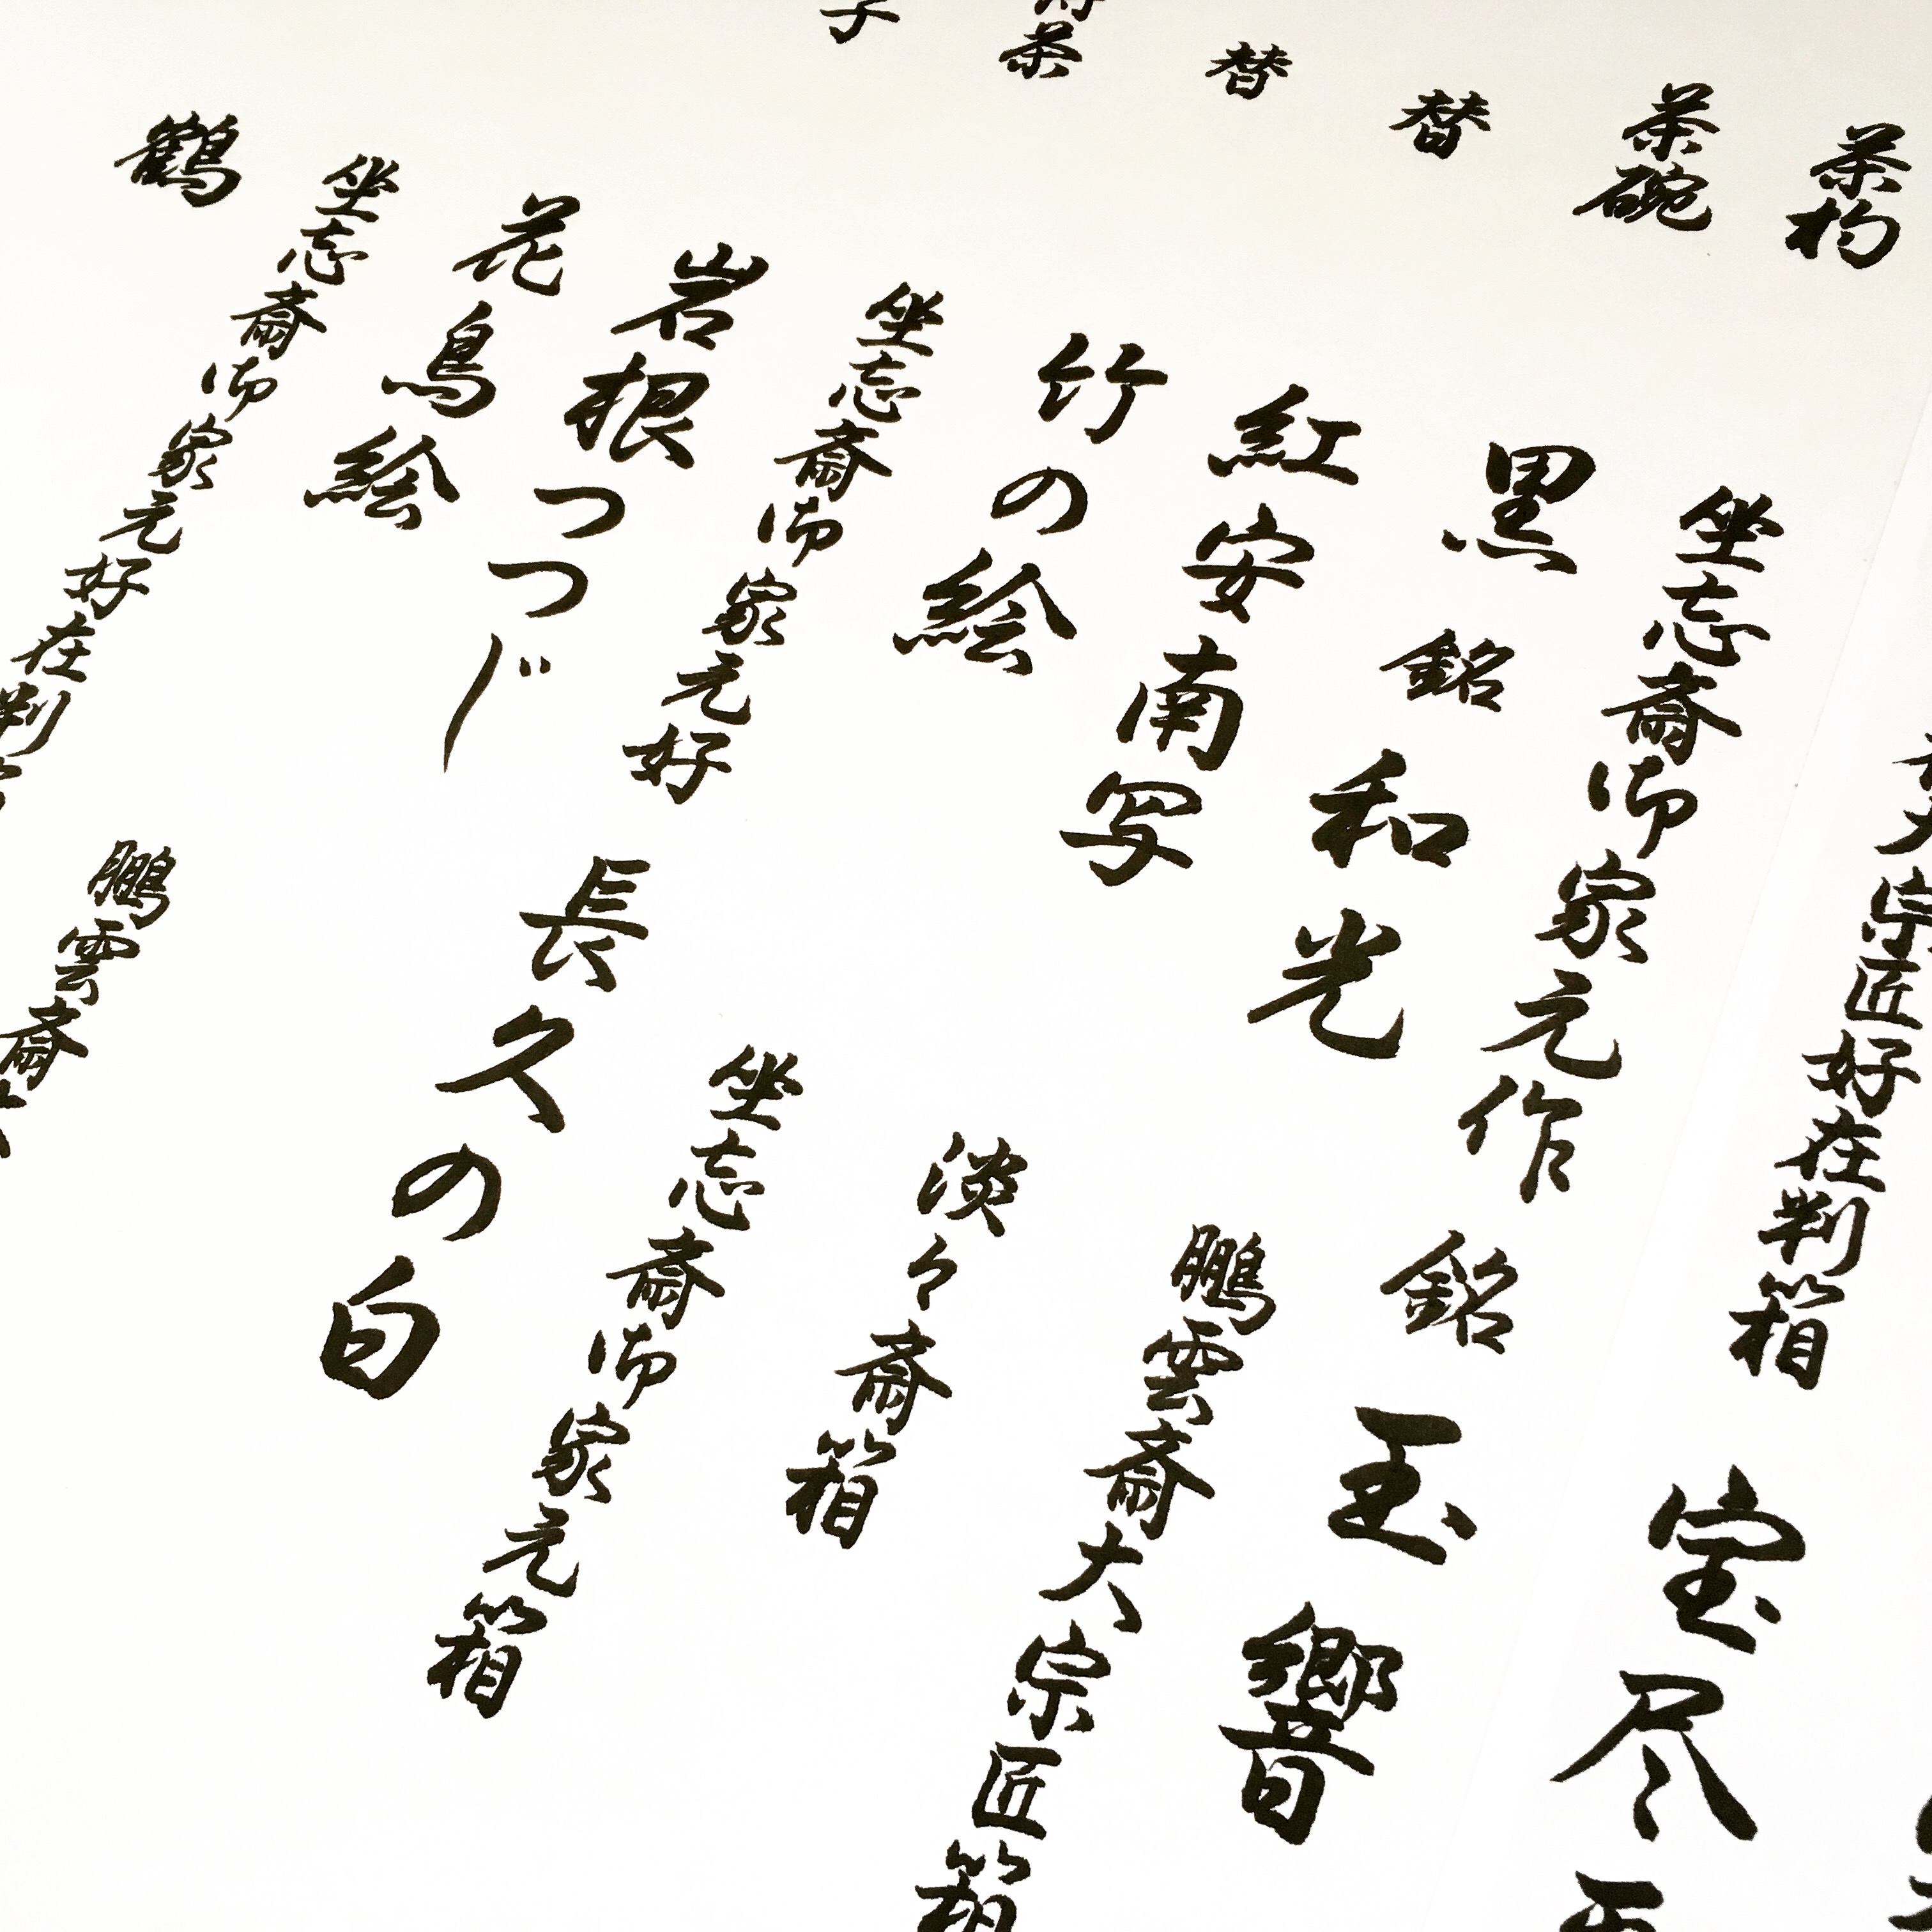 宗匠好在判箱
宝尽
茶杓 坐忘斎御家元作 銘 玉響
茶碗 黒 銘 和光 鵬雲斎大宗匠箱
替 紅安南写 淡々斎箱
替 竹の絵 坐忘斎御家元箱
茶 坐忘斎御家元好 長久の白
子 岩根つつじ
花鳥絵 鵬雲斎
坐忘斎御家元好在判
鶴